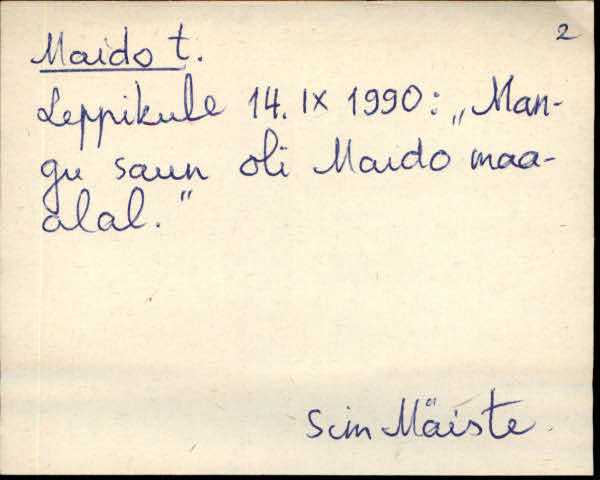 2
Maido t.
Leppikule 14. IX 1990: „Man-
gu saun oli Maido maa-
alal."
Sim Mäiste